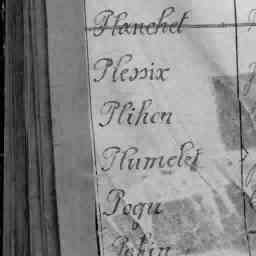 Planchet
Plessix
Plihon
Plumelet
Pogu